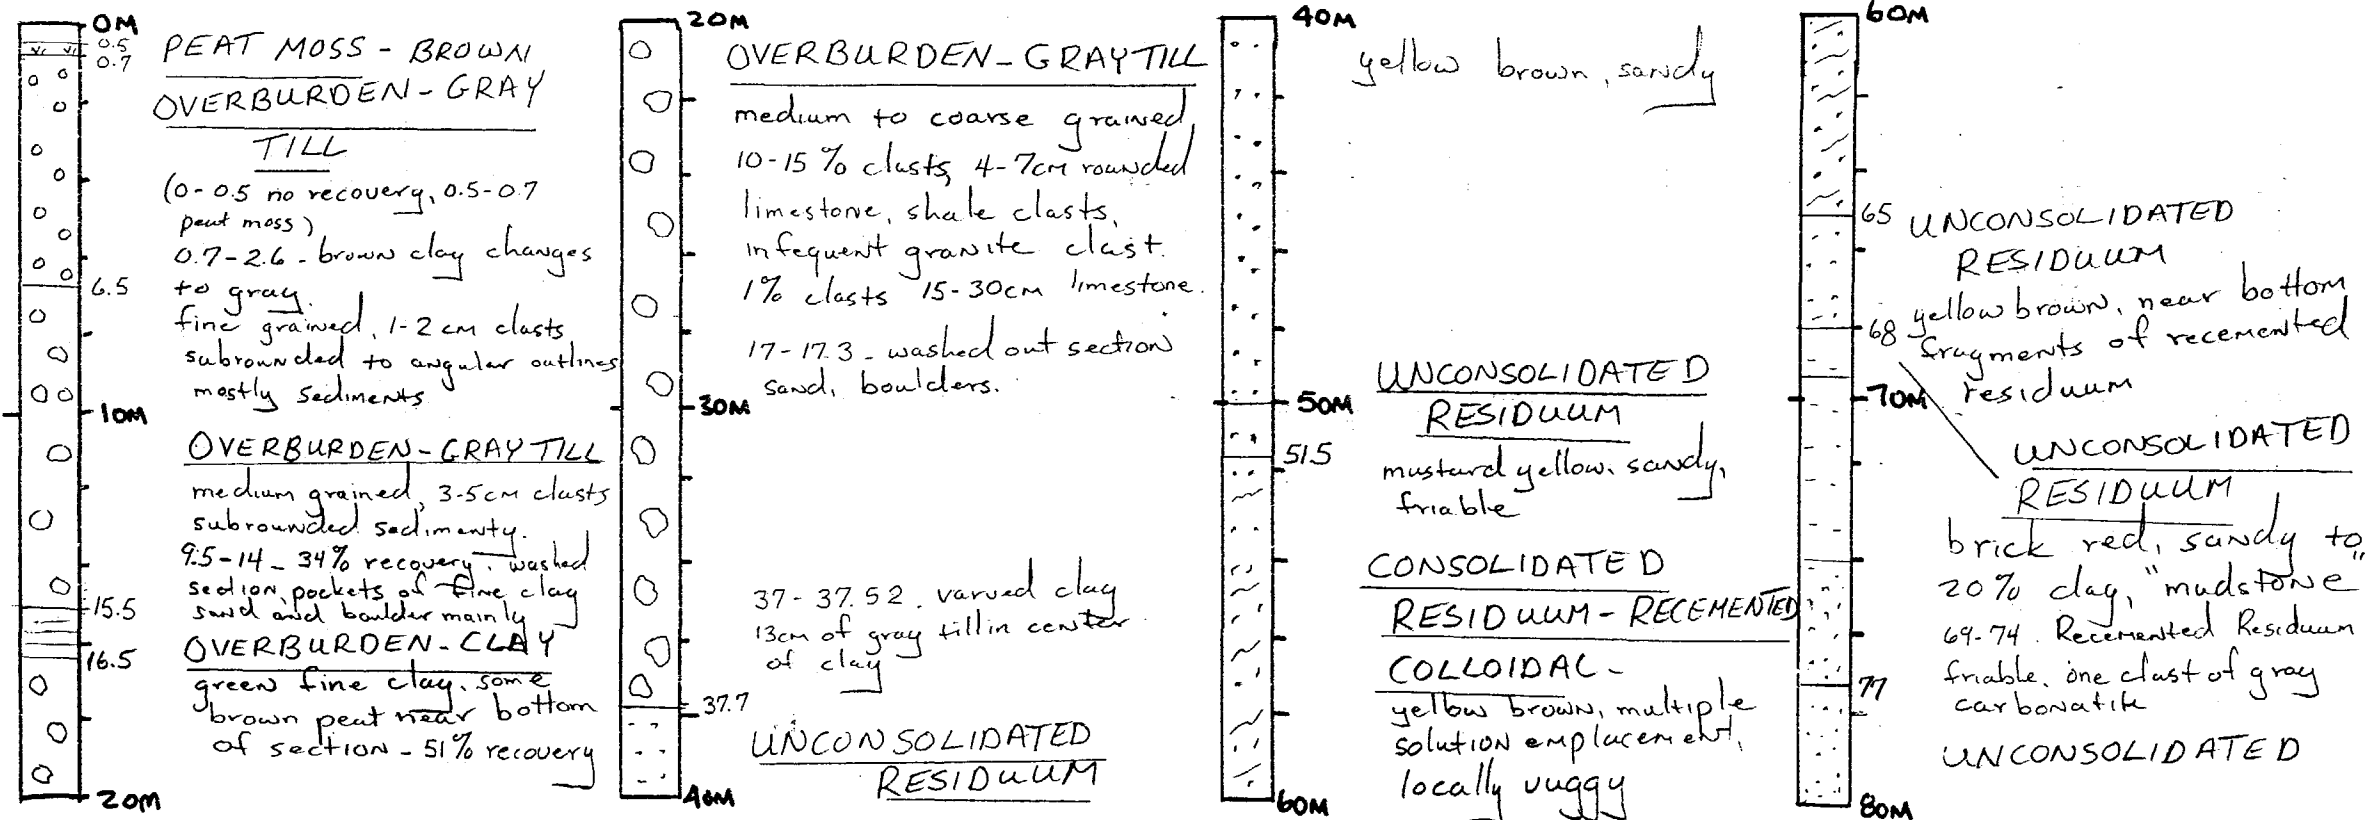 0M
0.5
0.7
PEAT MOSS - BROWN
OVERBURDEN - GRAY
TILL
(0-0.5 no recovery, 0.5-0.7
peat moss)
0.7-2.6 - brown clay changes
to gray.
fine grained, 1-2 cm clasts
subrounded to angular outlines
mostly sediments
6.5
10M
OVERBURDEN - GRAY TILL
medium grained, 3-5cm clasts
subrounded sedimenty.
9.5-14 - 34% recovery, washed
section, pockets of fine clay
sand and boulder mainly
15.5
OVERBURDEN - CLAY
16.5
green fine clay, some
brown peat near bottom
of section - 51% recovery
20M
20M
OVERBURDEN - GRAY TILL
medium to coarse grained,
10-15% clasts, 4-7cm rounded
limestone, shale clasts,
infequent granite clast.
1% clasts 15-30cm limestone.
17-17.3 - washed out section
sand, boulders.
30M
37-37.52. varved clay
13cm of gray till in center
of clay
37.7
UNCONSOLIDATED
RESIDUUM
40M
40M
yellow brown, sandy
UNCONSOLIDATED
50M
RESIDUUM
51.5
mustard yellow, sandy,
friable
CONSOLIDATED
RESIDUUM - RECEMENTED
COLLOIDAL -
yellow brown, multiple
solution emplacement,
locally vuggy
60M
60M
65
UNCONSOLIDATED
RESIDUUM
yellow brown, near bottom
68
fragments of recemented
residuum
70M
UNCONSOLIDATED
RESIDUUM
brick red, sandy to
20% clay, "mudstone"
69-74. Recemented Residuum
friable, one clast of gray
carbonatite
77
UNCONSOLIDATED
80M